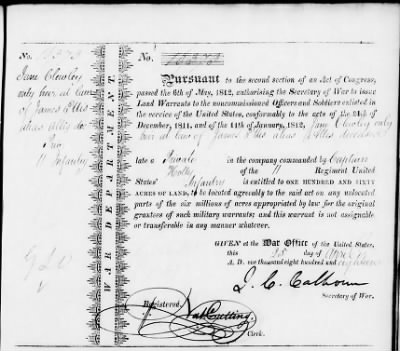 No.
Jane Clowley
only heir at law
of James
alias
11 Infantry
WAR DEPARTMENT.
No.
Pursuant to the second section of an Act of Congress,
passed the 6th of May, 1812, authorising the Secretary of War to issue
Land Warrants to the noncommissioned Officers and Soldiers enlisted in
the service of the United States, conformably to the acts of the 24th of
December, 1811, and of the 11th of January, 1812, Jane Clowley only
heir at law of James alias deceased
late a Private in the company commanded by Captain
of the 11 Regiment United
States' Infantry is entitled to ONE HUNDRED AND SIXTY
ACRES OF LAND, to be located agreeably to the said act on any unlocated
parts of the six millions of acres appropriated by law for the original
grantees of such military warrants; and this warrant is not assignable
or transferable in any manner whatever.
GIVEN at the War Office of the United States,
this 25 day of April
A. D. one thousand eight hundred and eighteen
J. C. Calhoun
Secretary of War.
Registered,
Nat Cutting
Clerk.